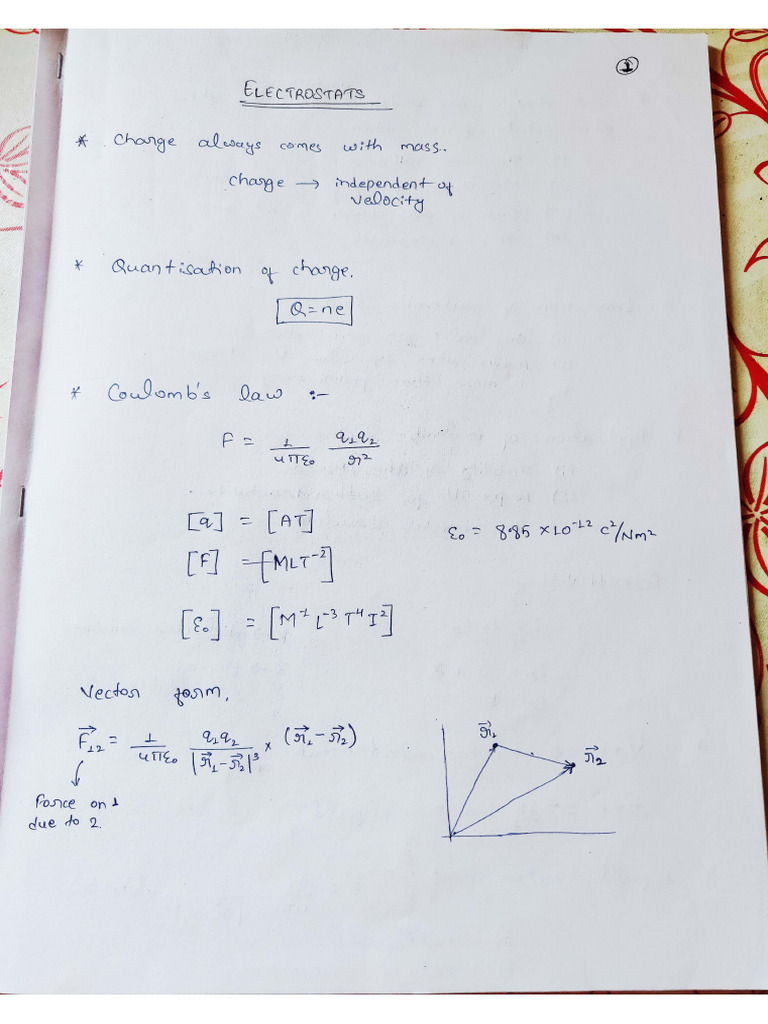 1
ELECTROSTATS
* Charge always comes with mass.
charge → independent of
velocity
* Quantisation of charge.
Q=ne
* Coulomb's law :-
F = 1/4πε₀ q₁q₂/r²
[q] = [AT]
ε₀ = 8.85 × 10⁻¹² C²/Nm²
[F] = [MLT⁻²]
[ε₀] = [M⁻¹ L⁻³ T⁴ I²]
Vector form,
F⃗₁₂ = 1/4πε₀ q₁q₂/|r⃗₁-r⃗₂|³ × (r⃗₁-r⃗₂)
r⃗₁
r⃗₂
Force on 1
due to 2.